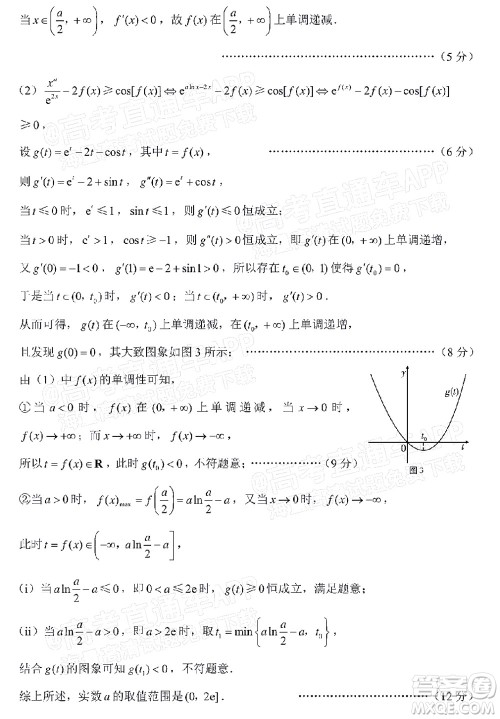 当 x∈(a/2, +∞), f′(x)<0, 故 f(x) 在 (a/2, +∞) 上单调递减.
……………………………………………………（5 分）
（2）x^a/e^(2x)−2f(x)≥cos[f(x)]⇔e^(a ln x−2x)−2f(x)≥cos[f(x)]⇔e^(f(x))−2f(x)−cos[f(x)]
≥0,
设 g(t)=e^t−2t−cos t, 其中 t=f(x), ……………………………（6 分）
则 g′(t)=e^t−2+sin t, g″(t)=e^t+cos t,
当 t≤0 时, e^t≤1, sin t≤1, g′(t)≤0 恒成立;
当 t>0 时, e^t>1, cos t≥−1, g″(t)>0 恒成立, g′(t) 单调递增,
又 g′(0)=−1<0, g′(1)=e−2+sin1>0, 所以存在 t₀∈(0, 1) 使得 g′(t₀)=0,
于是当 t∈(0, t₀) 时, g′(t)<0; 当 t∈(t₀, +∞) 时, g′(t)>0,
从而可得, g(t) 在 (−∞, t₀) 上单调递减, 在 (t₀, +∞) 上单调递增,
且发现 g(0)=0, 其大致图象如图 3 所示: ……………………………（8 分）
由（1）中 f(x) 的单调性可知,
①当 a<0 时, f(x) 在 (0, +∞) 上单调递减, 当 x→0 时,
f(x)→+∞; 而当 x→+∞ 时, f(x)→−∞,
所以 t=f(x)∈R, 此时 g(t₀)<0, 不符题意; ………………（9 分）
y
g(t)
O
t₀
t
图 3
②当 a>0 时, f(x)max=f(a/2)=a ln a/2−a, 当 x→0 时, f(x)→−∞,
此时 t=f(x)∈(−∞, a ln a/2−a],
（i）当 a ln a/2−a≤0, 即 0<a≤2e 时, g(t)≥0 恒成立, 满足题意;
（ii）当 a ln a/2−a>0, 即 a>2e 时, 取 t₁=min{a ln a/2−a, t₀},
结合 g(t) 的图象可知 g(t₁)<0, 不符题意.
综上所述, 实数 a 的取值范围是 (0, 2e]. ……………………………（12 分）
高考直通车APP